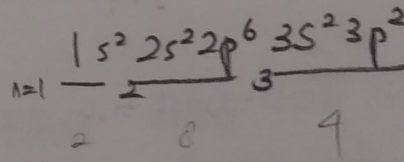 1s² 2s² 2p⁶ 3s² 3p²
n=1 2 3
2 8 4